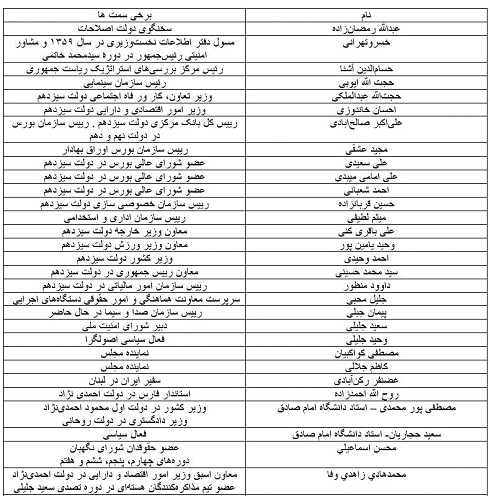 نام برخی سمت ها
عبدالله رمضان‌زاده سخنگوی دولت اصلاحات
خسروتهرانی مسول دفتر اطلاعات نخست‌وزیری در سال ۱۳۵۹ و مشاور
امنیتی رئیس‌جمهور در دورۀ سیدمحمد خاتمی
حسام‌الدین آشنا رئیس مرکز بررسی‌های استراتژیک ریاست جمهوری
حجت الله ایوبی رئیس سازمان سینمایی
حجت‌الله عبدالملکی وزیر تعاون، کار ور فاه اجتماعی دولت سیزدهم
احسان خاندوزی وزیر امور اقتصادی و دارایی دولت سیزدهم
علی‌اکبر صالح‌آبادی رییس کل بانک مرکزی دولت سیزدهم . رییس سازمان بورس
در دولت نهم و دهم
مجید عشقی رییس سازمان بورس اوراق بهادار
علی سعیدی عضو شورای عالی بورس در دولت سیزدهم
علی امامی میبدی عضو شورای عالی بورس در دولت سیزدهم
احمد شعبانی عضو شورای عالی بورس در دولت سیزدهم
حسین قربانزاده رییس سازمان خصوصی سازی دولت سیزدهم
میثم لطیفی رییس سازمان اداری و استخدامی
علی باقری کنی معاون وزیر خارجه دولت سیزدهم
وحید یامین پور معاون وزیر ورزش دولت سیزدهم
احمد وحیدی وزیر کشور دولت سیزدهم
سید محمد حسینی معاون رییس جمهوری در دولت سیزدهم
داوود منظور رییس سازمان امور مالیاتی در دولت سیزدهم
جلیل محبی سرپرست معاونت هماهنگی و امور حقوقی دستگاه‌های اجرایی
پیمان جبلی رییس سازمان صدا و سیما در حال حاضر
سعید جلیلی دبیر شورای امنیت ملی
وحید جلیلی فعال سیاسی اصولگرا
مصطفی کواکبیان نماینده مجلس
کاظم جلالی نماینده مجلس
غضنفر رکن‌آبادی سفیر ایران در لبنان
روح الله احمدزاده استاندار فارس در دولت احمدی نژاد
مصطفی پور محمدی – استاد دانشگاه امام صادق وزیر کشور در دولت اول محمود احمدی‌نژاد
وزیر دادگستری در دولت روحانی
سعید حجاریان- استاد دانشگاه امام صادق فعال سیاسی
محسن اسماعیلی عضو حقوقدان شورای نگهبان
دوره‌های چهارم، پنجم، ششم و هفتم
محمدهادي زاهدي وفا معاون اسبق وزیر امور اقتصاد و دارایی در دولت احمدی‌نژاد
عضو تیم مذاکره‌کنندگان هسته‌ای در دوره تصدی سعید جلیلی